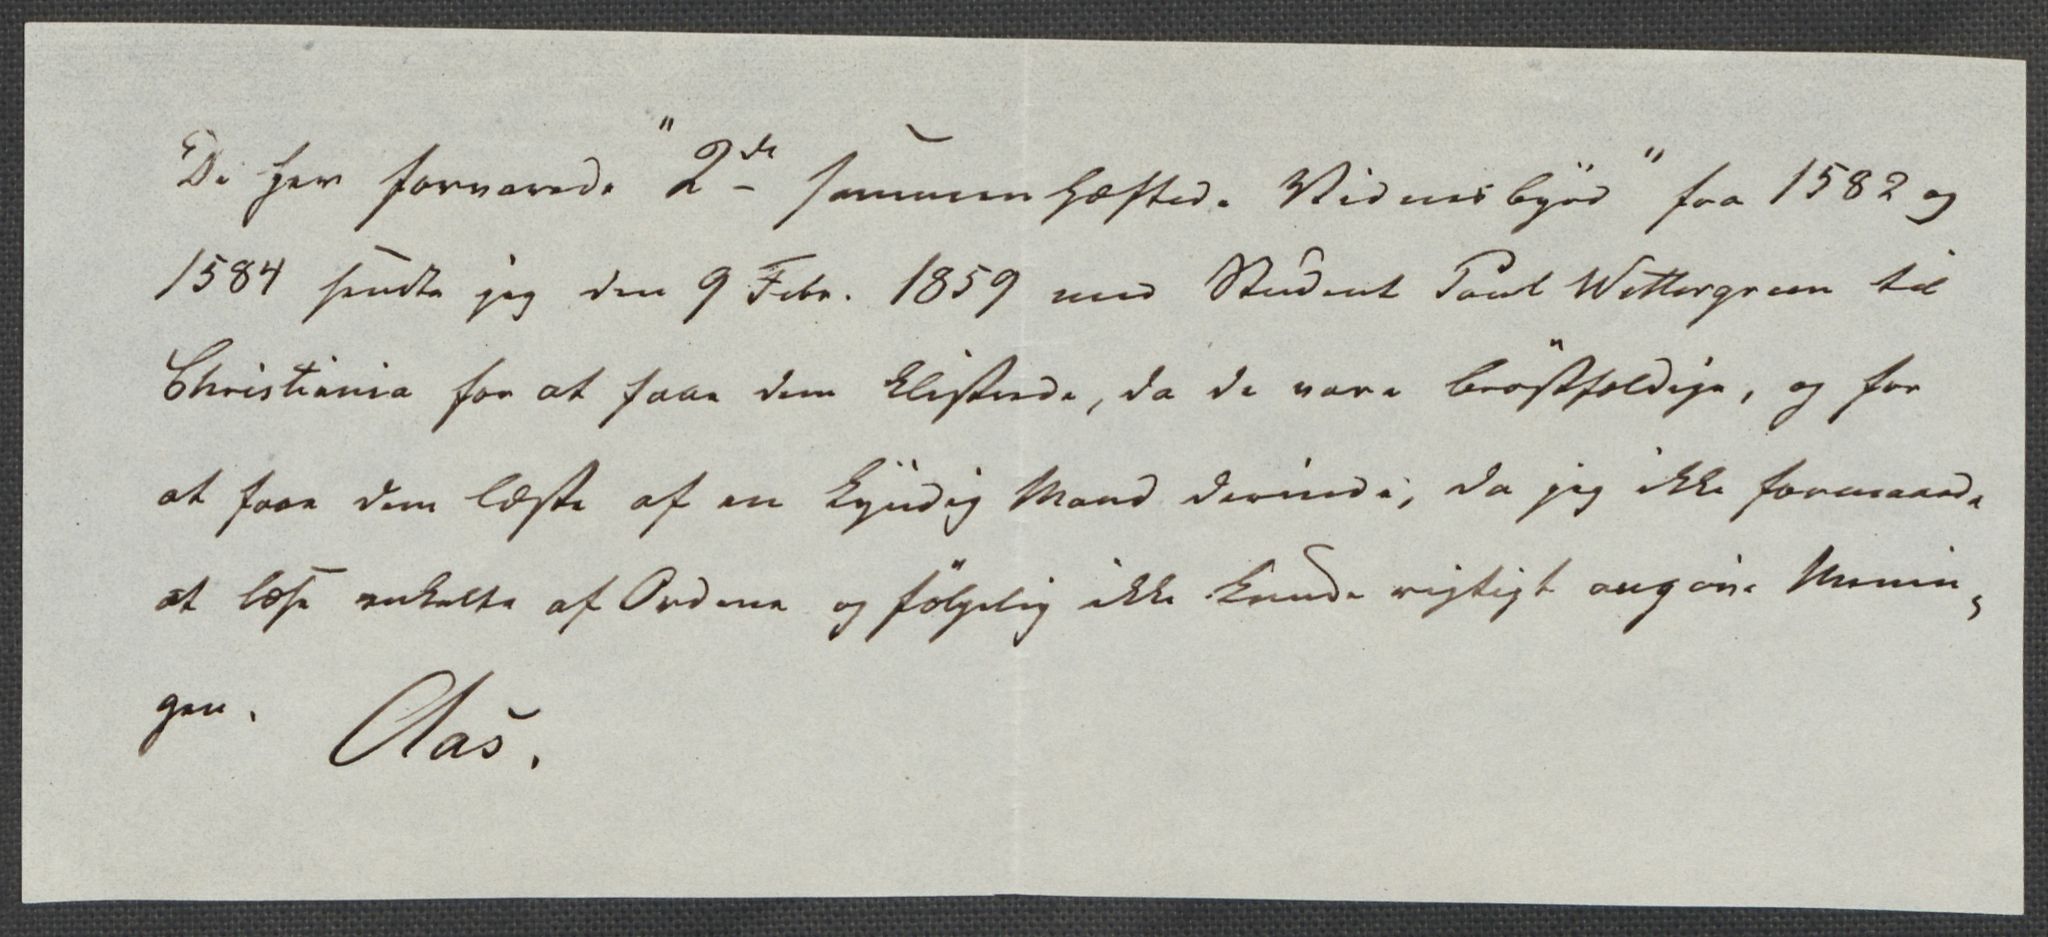 De her forvarede "2de sammenhæftede Vidnesbyrd" fra 1582 og
1584 sendte jeg den 9 Febr. 1859 med Student Paul Wettergreen til
Christiania for at faae dem klistrede, da de vare bröstfældige, og for
at faae dem læste af en kyndig Mand derinde, da jeg ikke formaaede
at læse enkelte af Ordene og fölgelig ikke kunde rigtigt angive Menin-
gen. Aas.